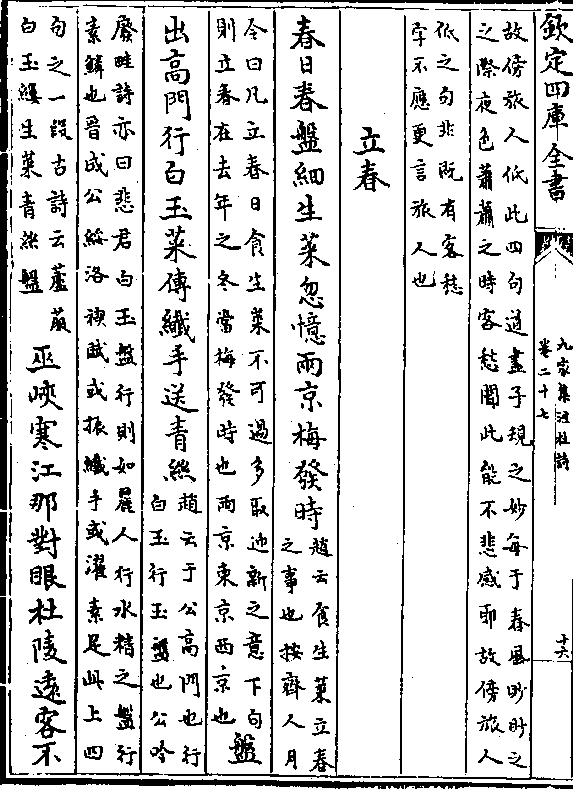 欽定四庫全書
九家集注杜詩
卷二十七
十六
故傍旅人低此四句道盡子規之妙每于春風眇眇之
之際夜色蕭蕭之時客愁聞此能不悲感耶故傍旅人
低之句非既有客愁
字不應更言旅人也
立春
春日春盤細生菜忽憶兩京梅發時
趙云食生菜立春
之事也按齊人月
令曰凡立春日食生菜不可過多取迎新之意下句
則立春在去年之冬當梅發時也兩京東京西京也
盤
出高門行白玉菜傳纖手送青絲
趙云于公高門也行
白玉行玉盤也公吟
廢畦詩亦曰悲君白玉盤行則如麗人行水精之盤行
素鱗也晉成公綏洛禊賦或振纖手或濯素足此上四
句之一段古詩云蘆菔
白玉縷生菜青絲盤
巫峽寒江那對眼杜陵遠客不